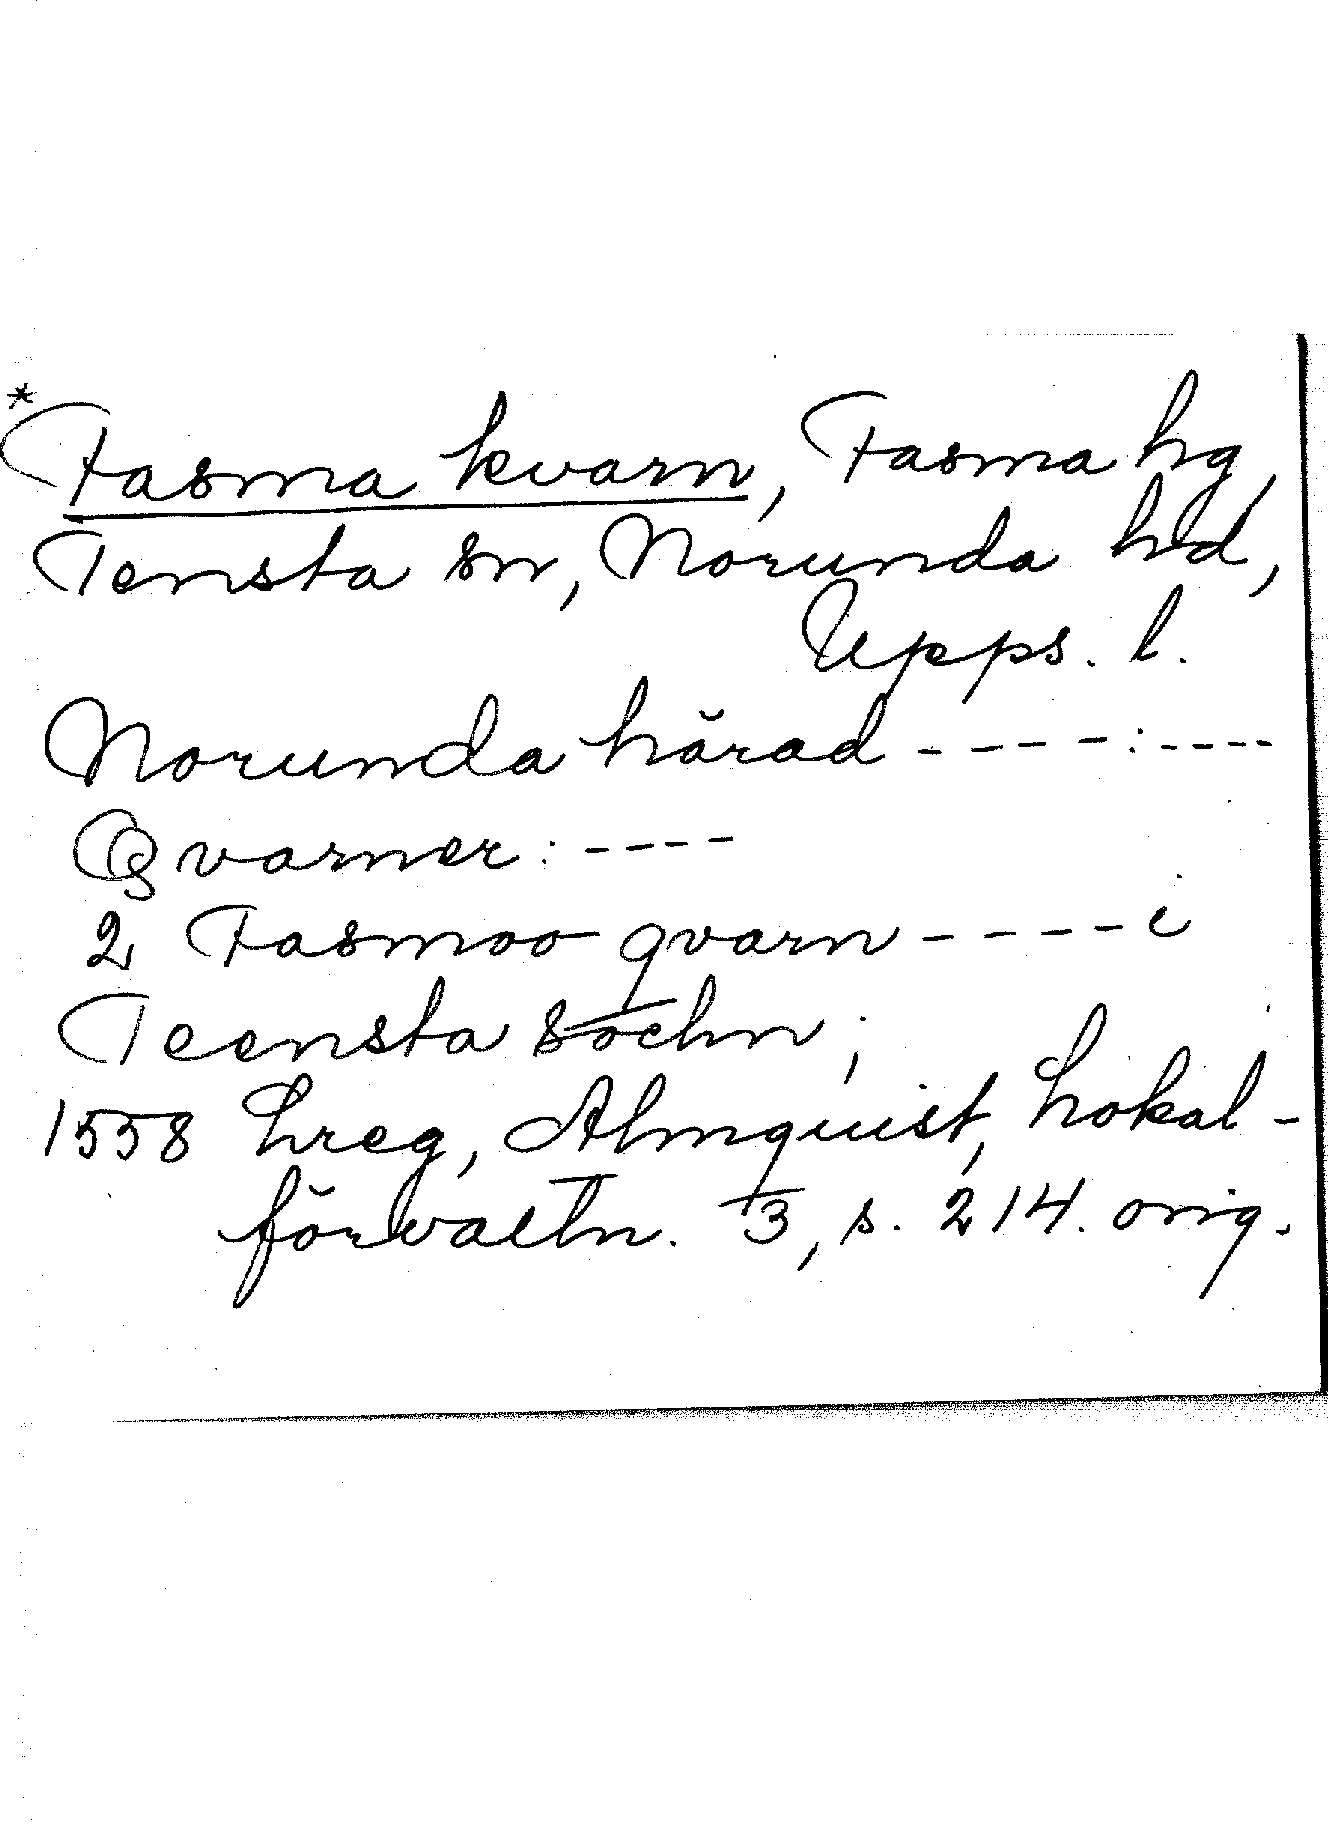 *
Fasma kvarn, Fasma hg,
Tensta sn, Norunda hd,
Upps. l.
Norunda härad - - - - : - - - -
Qvarner: - - - -
2 Fasmoo qvarn - - - - i
Teensta sochn;
1558 hreg, Almquist, Lokal-
förvaltn. 3, s. 214. orig.